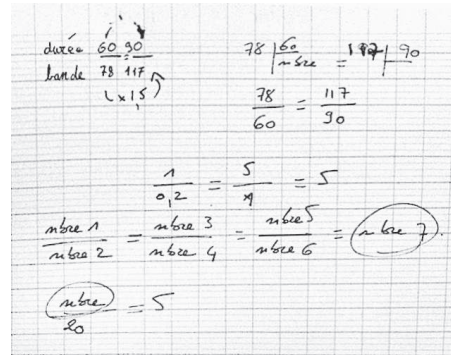 durée 60 = 90
bande 78 117
x 1,5
78 | 60
nbre = 117 | 90
78/60 = 117/90
1/0,2 = 5/1 = 5
nbre 1/nbre 2 = nbre 3/nbre 4 = nbre 5/nbre 6 = nbre 7.
nbre/20 = 5